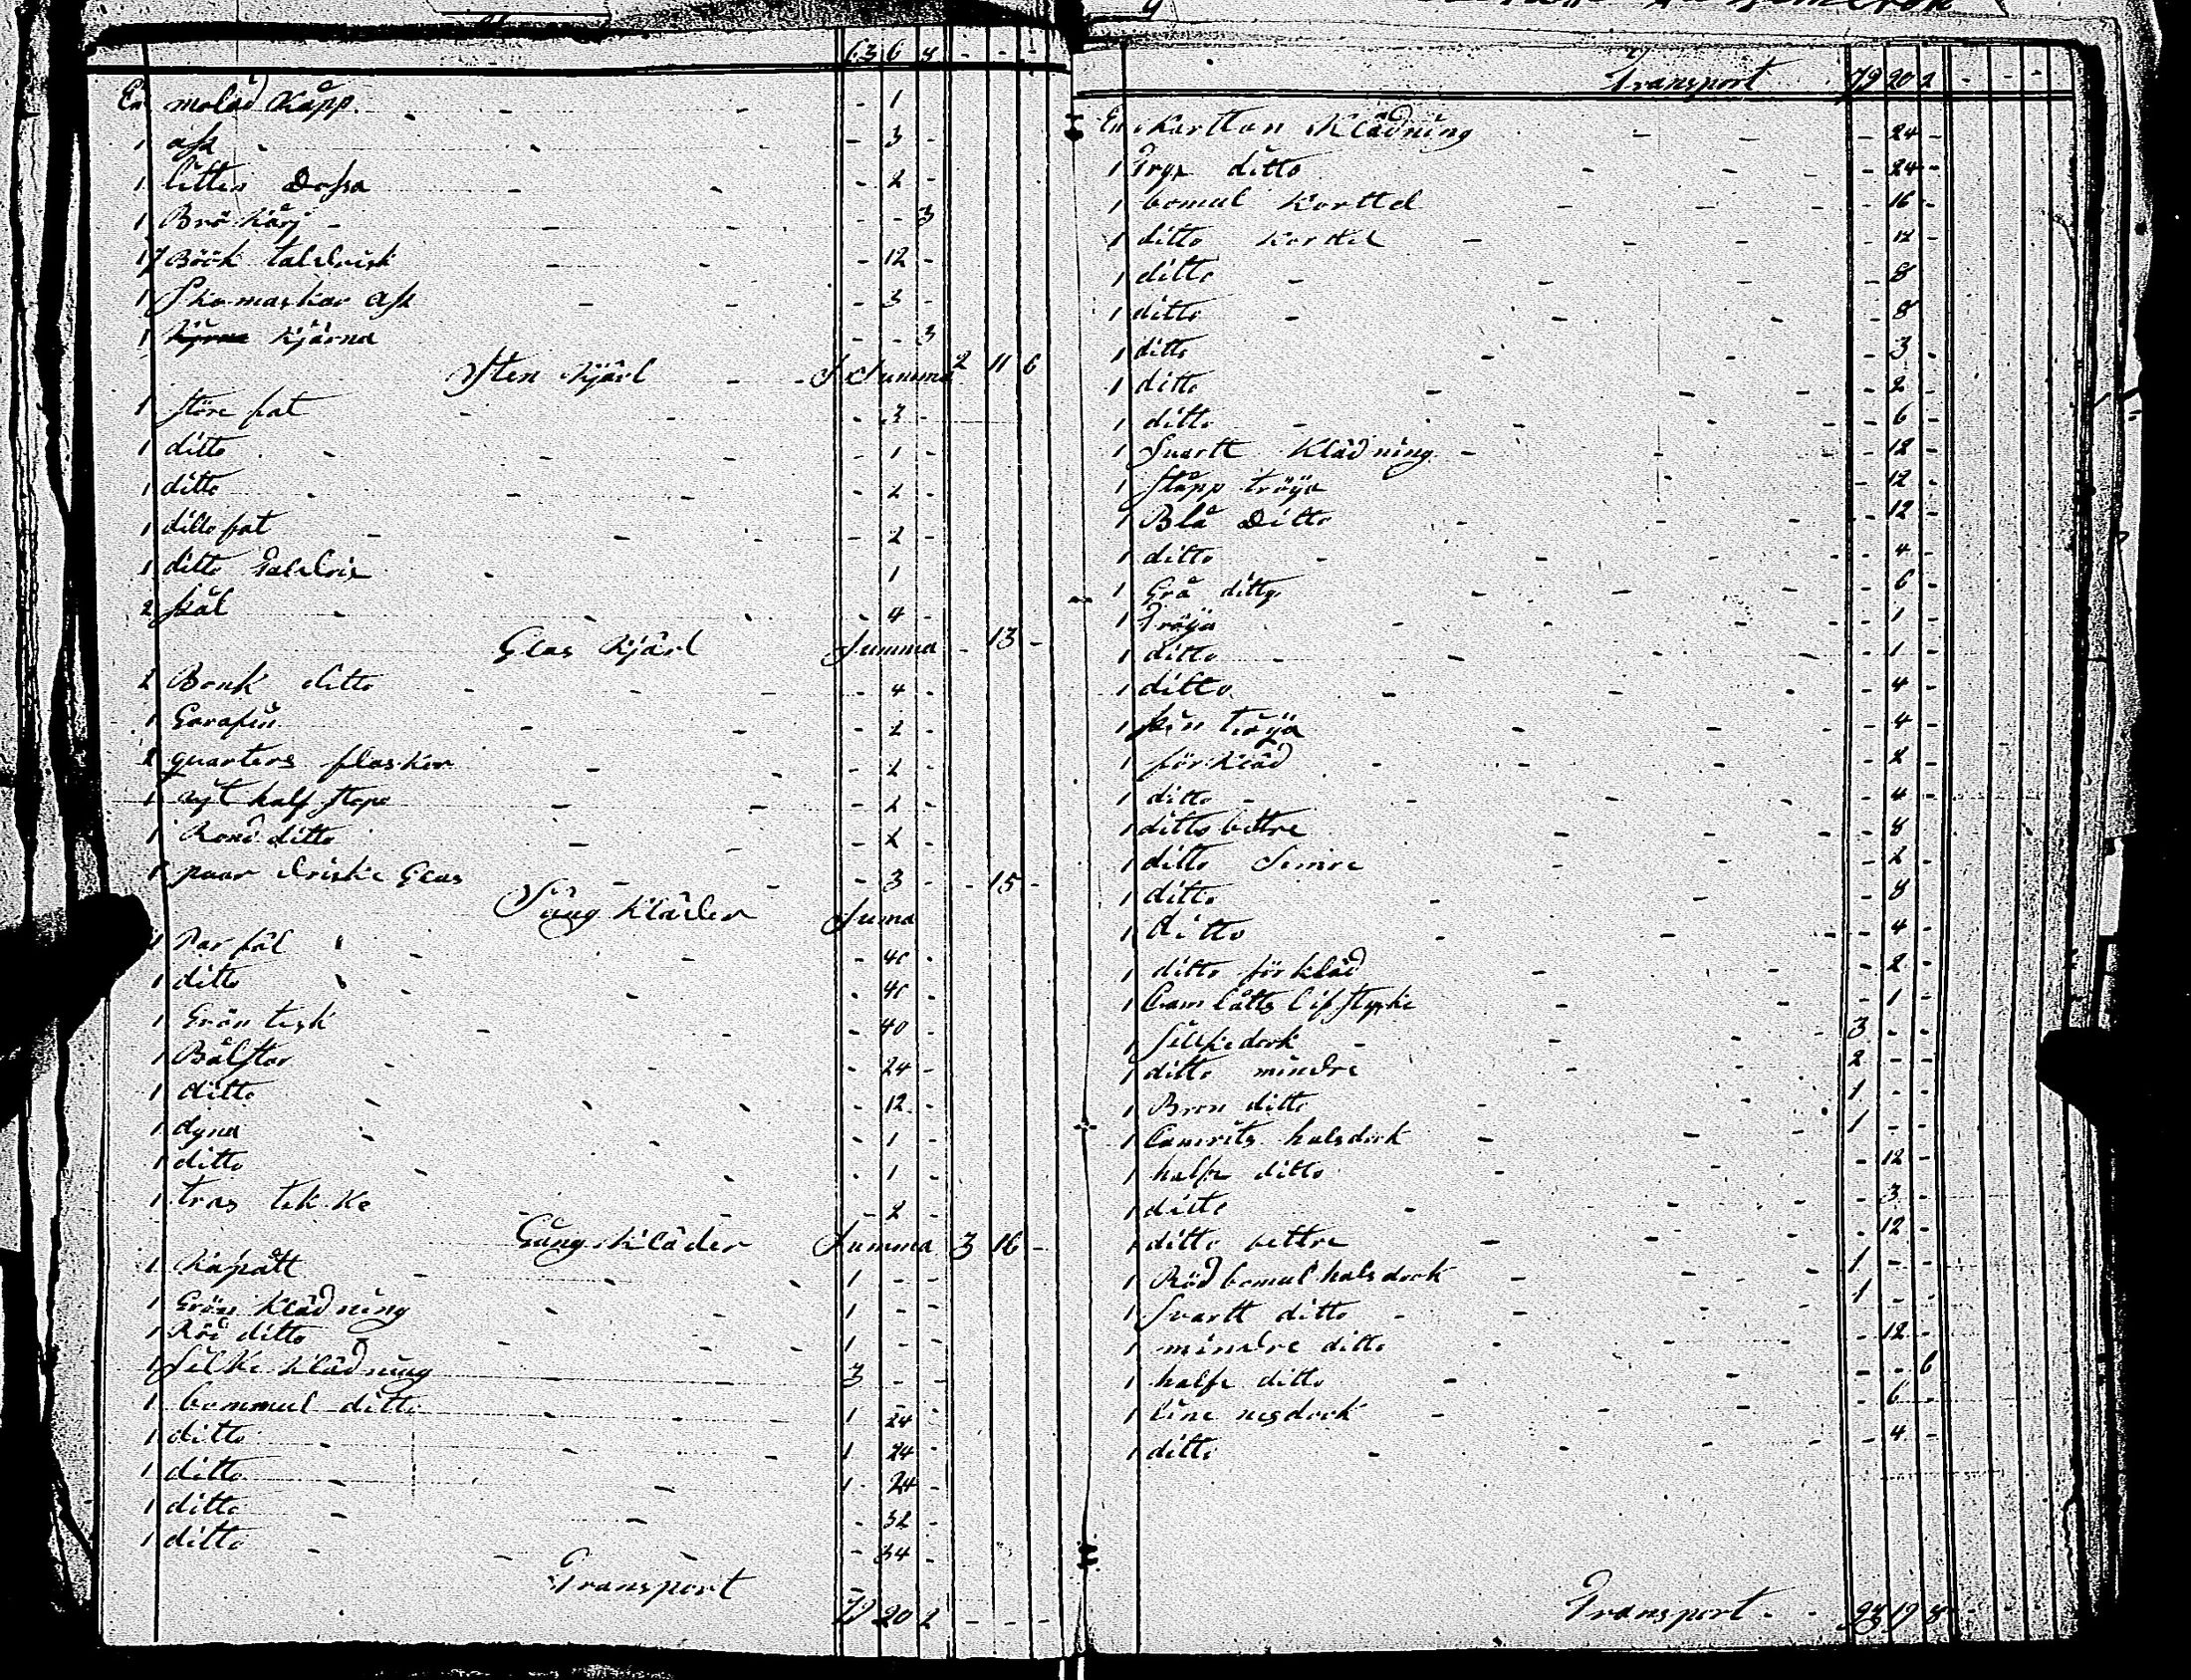 63 6 4 - - -
En målad Kåpp - 1
1 ask - 3 -
1 litten Dossa - 2 -
1 Brö Kårj - - 3
17 Böök taldrisk - 12 -
1 Skomaskar ask - 3 -
1 Kjärna - - 3
Sten Kjärl Summa 2 11 6
1 störe fat - 3 -
1 ditto - 1 -
1 ditto - 2 -
1 ditto fat - 2 -
1 ditto Taldrik 1
2 skål - 4 -
Glas Kjärl Summa - 13 -
2 Bonk ditto - 4 -
1 Garafin - 2 -
2 quarters flaskor - 2 -
1 halfstope - 2 -
1 Rond ditto - 2 -
1 paar driske Glas - 3 - - 15 -
Säng Kläder Suma
1 Par fäl - 40 -
1 ditto - 40 -
1 Grön tesk - 40 -
1 Bålstar - 24 -
1 ditto - 12 -
1 dyna - 1 -
1 ditto - 1 -
1 tras tekke - 2 -
Gång Kläder Summa 3 16 -
1 Kapått 1 - -
1 Grön Klädning 1 - -
1 Röd ditto 1 - -
1 Silke Klädning 3 - -
1 bommul ditto 1 24 -
1 ditto 1 24 -
1 ditto 1 24 -
1 ditto - 32 -
1 ditto - 34 -
Transport
79 20 2 - - -
Transport 79 20 2 - - -
En Karttun Klädning - 24 -
1 ditto - 24 -
1 bomul Korttel - 16 -
1 ditto Korttel - 12 -
1 ditto - 8 -
1 ditto - 8
1 ditto - 3 -
1 ditto - 2 -
1 ditto - 6 -
1 Svartt Klädning - 12 -
1 ståpp tröya - 12 -
1 Blå Ditto - 12 -
1 ditto - 4 -
1 Grå ditto - 6 -
1 Tröya - 1 -
1 ditto - 1 -
1 ditto - 4 -
1 skin tröya - 4 -
1 förkläd - 2 -
1 ditto - 4 -
1 ditto bettre - 8 -
1 ditto Semre - 2 -
1 ditto - 8
1 ditto - 4 -
1 ditto förkläd - 2 -
1 Camlåtts lifstycke - 1 -
1 Silkedock 3 - -
1 ditto mindre 2 - -
1 Bron ditto 1 - -
1 Camrits halsdock 1 - -
1 halfve ditto - 12 -
1 ditto - 3 -
1 ditto bettre - 12 -
1 Röd bomul halsdock 1 - -
1 Svartt ditto 1 - -
1 mindre ditto - 12 -
1 halfve ditto - - 6
1 line nesdock - 6 -
1 ditto - 4 -
Transport 93 19 8 - - -